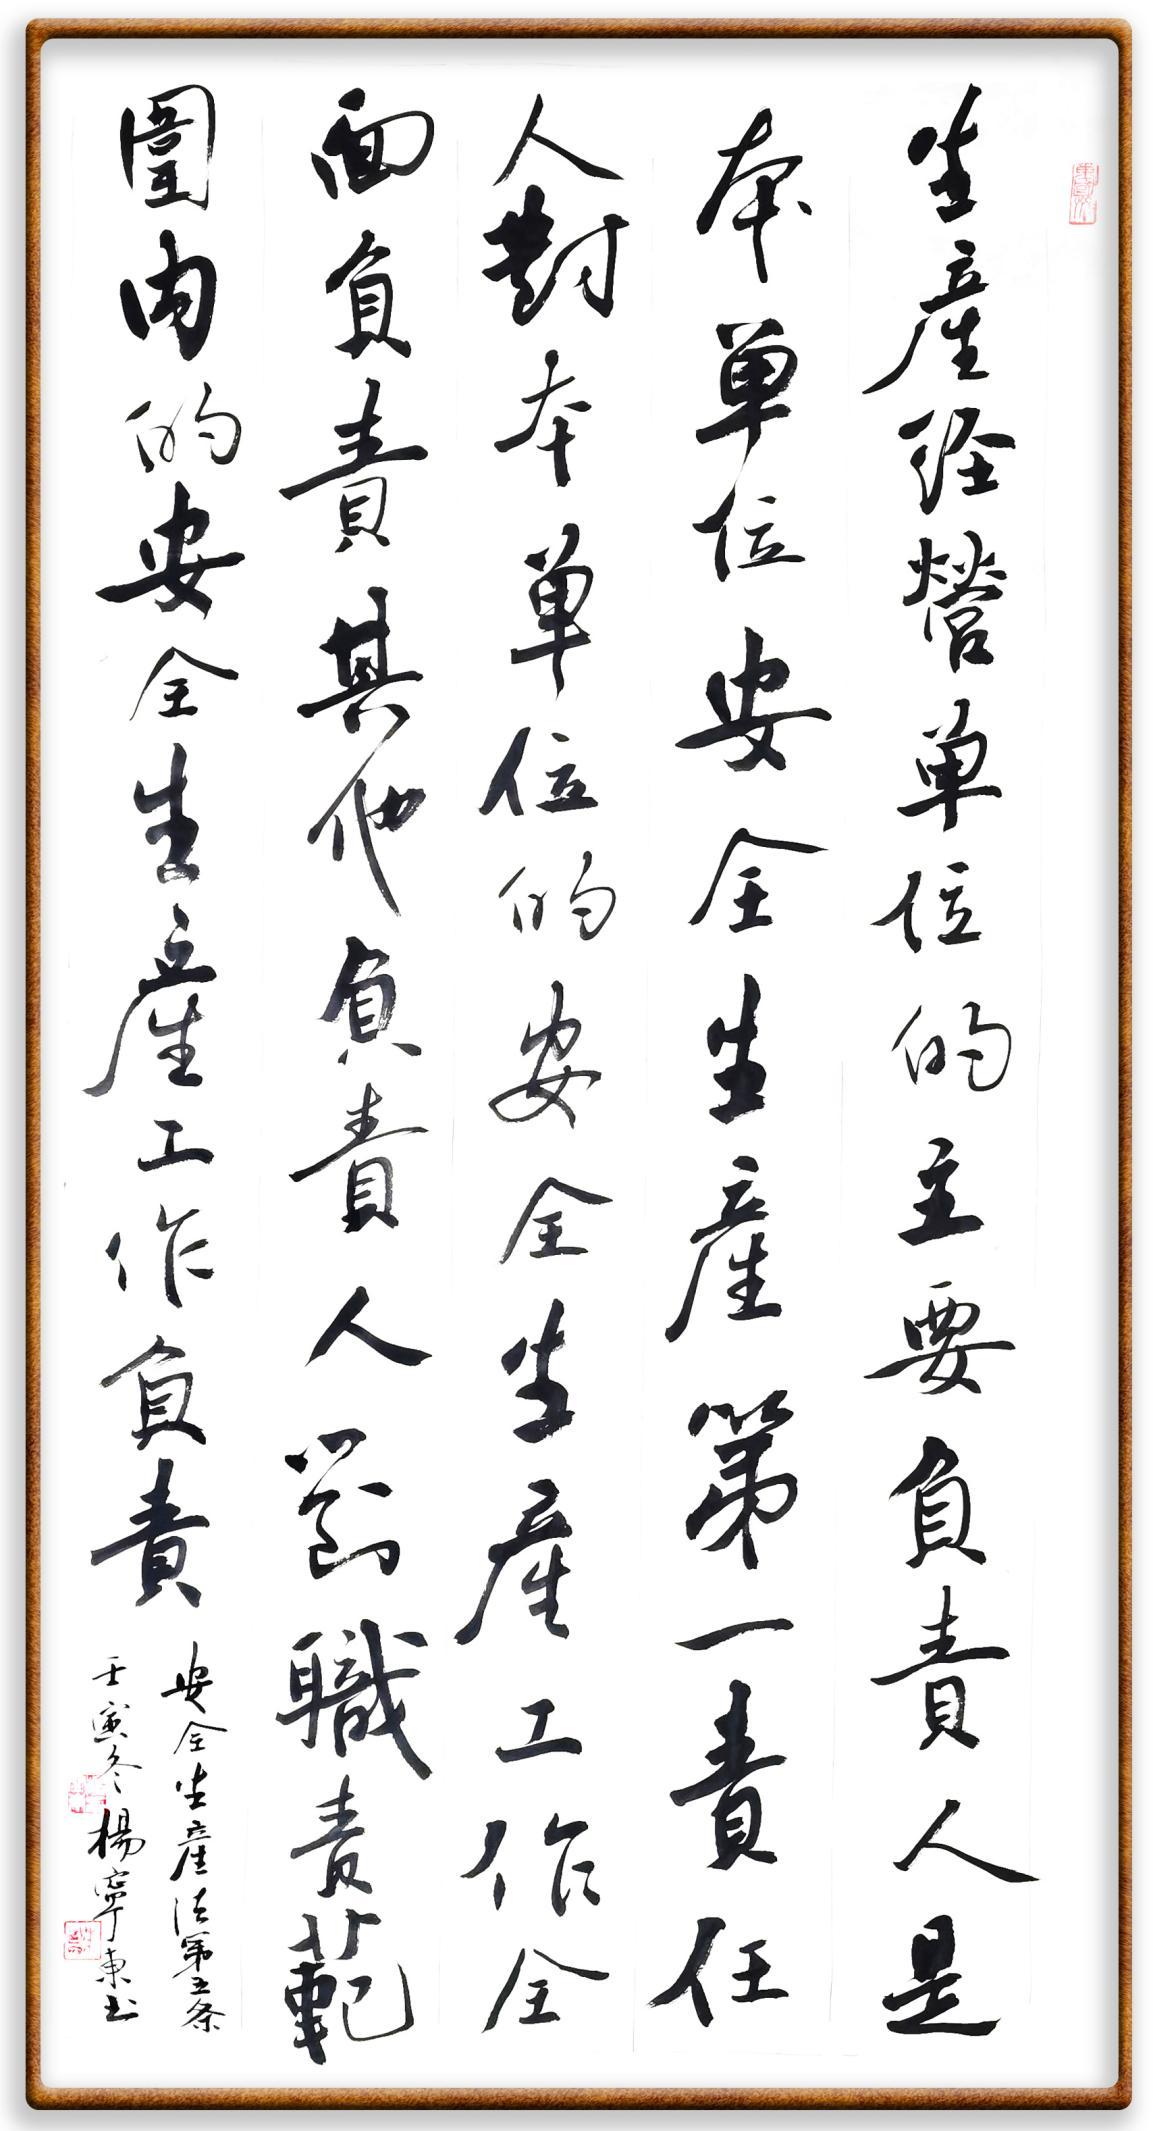 生產经營单位的主要負責人是
本单位安全生產第一責任
人對本单位的安全生產工作全
面負責其他負責人對職責範
圍内的安全生產工作負責
安全生產法第五条
壬寅冬楊寧東书